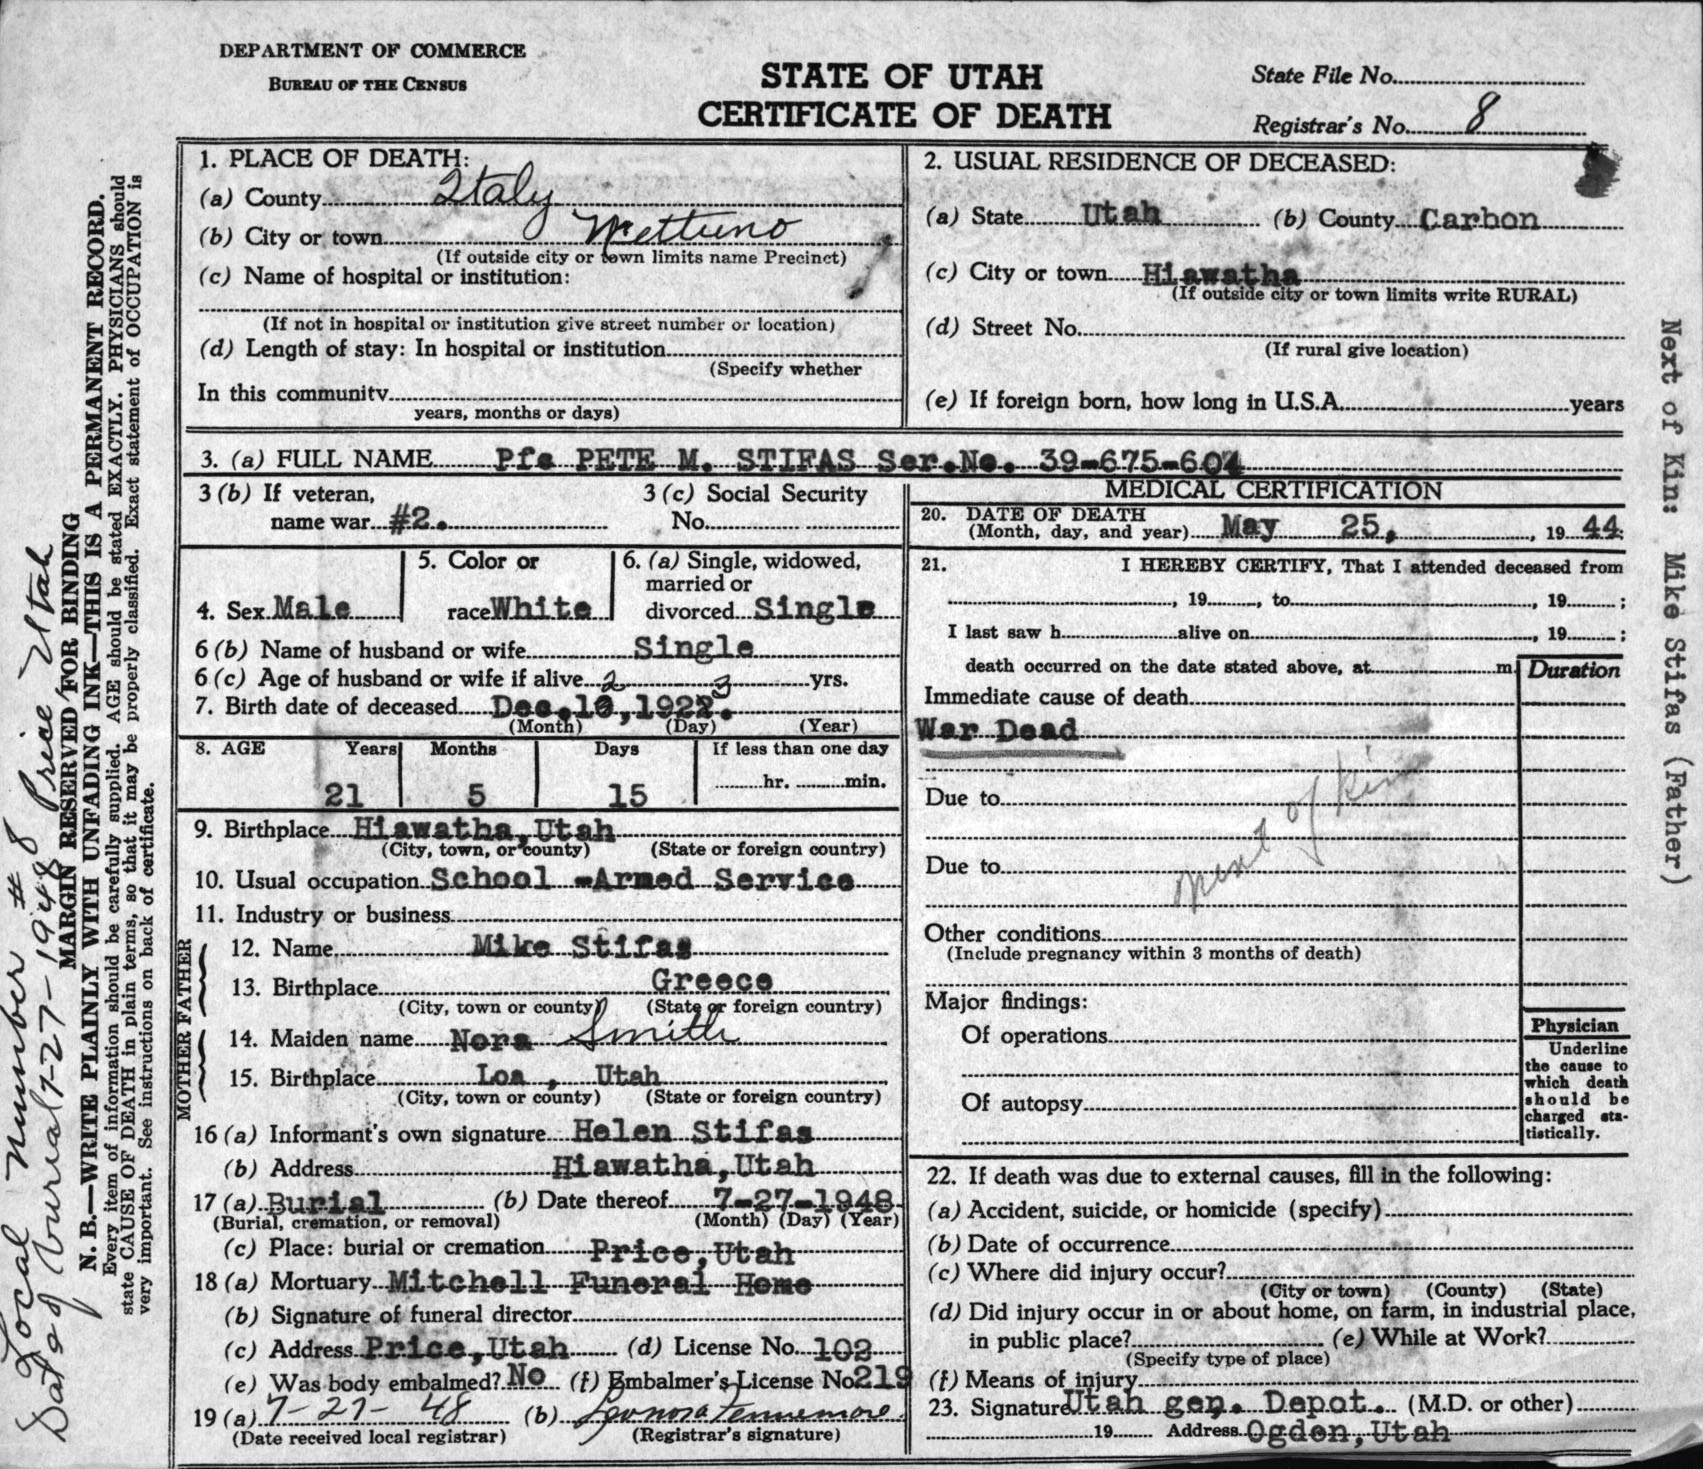 DEPARTMENT OF COMMERCE
BUREAU OF THE CENSUS
STATE OF UTAH
CERTIFICATE OF DEATH
State File No.
Registrar's No. 8
1. PLACE OF DEATH:
(a) County Italy
(b) City or town Nettuno
(If outside city or town limits name Precinct)
(c) Name of hospital or institution:
(If not in hospital or institution give street number or location)
(d) Length of stay: In hospital or institution
(Specify whether
In this community
years, months or days)
2. USUAL RESIDENCE OF DECEASED:
(a) State Utah (b) County Carbon
(c) City or town Hiawatha
(If outside city or town limits write RURAL)
(d) Street No.
(If rural give location)
(e) If foreign born, how long in U.S.A. years
3. (a) FULL NAME Pfc PETE M. STIFAS Ser.No. 39-675-604
3 (b) If veteran,
name war #2.
3 (c) Social Security
No.
4. Sex Male
5. Color or
race White
6. (a) Single, widowed,
married or
divorced Single
6 (b) Name of husband or wife Single
6 (c) Age of husband or wife if alive 2 3 yrs.
7. Birth date of deceased Dec.10,1922.
(Month) (Day) (Year)
8. AGE Years Months Days If less than one day
21 5 15 hr. min.
9. Birthplace Hiawatha,Utah
(City, town, or county) (State or foreign country)
10. Usual occupation School -Armed Service
11. Industry or business
FATHER
12. Name Mike Stifas
13. Birthplace Greece
(City, town or county) (State or foreign country)
MOTHER
14. Maiden name Nora Smith
15. Birthplace Loa , Utah
(City, town or county) (State or foreign country)
16 (a) Informant's own signature Helen Stifas
(b) Address Hiawatha,Utah
17 (a) Burial (b) Date thereof 7-27-1948
(Burial, cremation, or removal) (Month) (Day) (Year)
(c) Place: burial or cremation Price,Utah
18 (a) Mortuary Mitchell Funeral Home
(b) Signature of funeral director
(c) Address Price,Utah (d) License No. 102
(e) Was body embalmed? No (f) Embalmer's License No 219
19 (a) 7-27-48 (b) Leonora Fennemore
(Date received local registrar) (Registrar's signature)
MEDICAL CERTIFICATION
20. DATE OF DEATH
(Month, day, and year) May 25, , 19 44;
21. I HEREBY CERTIFY, That I attended deceased from
, 19 , to , 19 ;
I last saw h alive on , 19 ;
death occurred on the date stated above, at m.
Duration
Immediate cause of death
War Dead
Due to
next of kin
Due to
Other conditions
(Include pregnancy within 3 months of death)
Major findings:
Of operations
Of autopsy
Physician
Underline
the cause to
which death
should be
charged sta-
tistically.
22. If death was due to external causes, fill in the following:
(a) Accident, suicide, or homicide (specify)
(b) Date of occurrence
(c) Where did injury occur?
(City or town) (County) (State)
(d) Did injury occur in or about home, on farm, in industrial place,
in public place? (e) While at Work?
(Specify type of place)
(f) Means of injury
23. Signature Utah gen. Depot. (M.D. or other)
19 Address Ogden,Utah
Next of Kin: Mike Stifas (Father)
Local Number # 8 Price Utah
Date of burial 7-27-1948
MARGIN RESERVED FOR BINDING
N. B.—WRITE PLAINLY WITH UNFADING INK—THIS IS A PERMANENT RECORD.
Every item of information should be carefully supplied. AGE should be stated EXACTLY. PHYSICIANS should
state CAUSE OF DEATH in plain terms, so that it may be properly classified. Exact statement of OCCUPATION is
very important. See instructions on back of certificate.